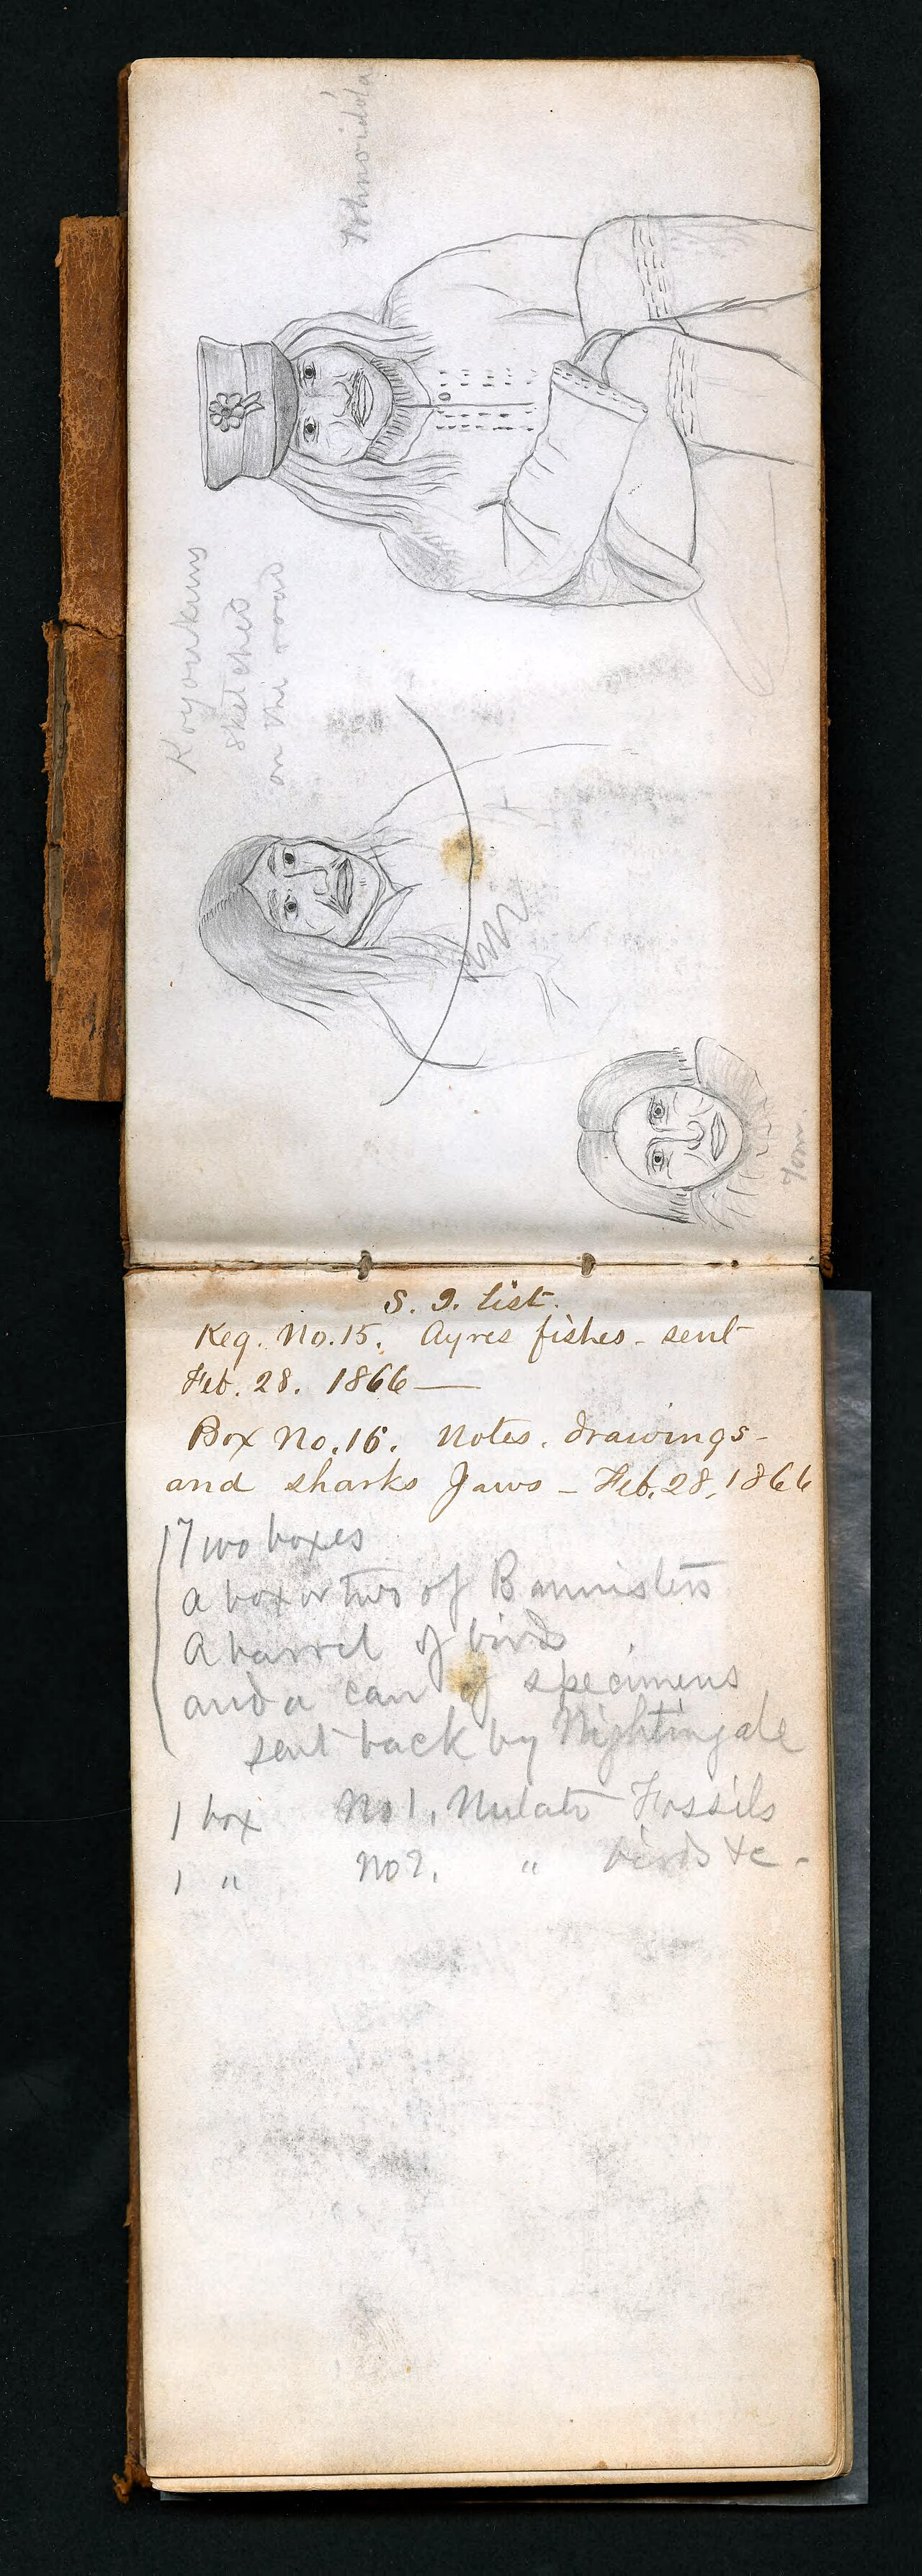 Koyoukuns
sketched
on the road
Tom.
S. I. list.
Keg. No. 15. Ayres fishes - sent
Feb. 28. 1866 —
Box No. 16. Notes. drawings -
and sharks Jaws - Feb. 28, 1866
Two boxes
a box or two of Bannisters
A barrel of birds
and a can of specimens
sent back by Nightingale
1 box No 1. Nulato Fossils
1 " No 2. " birds &c -